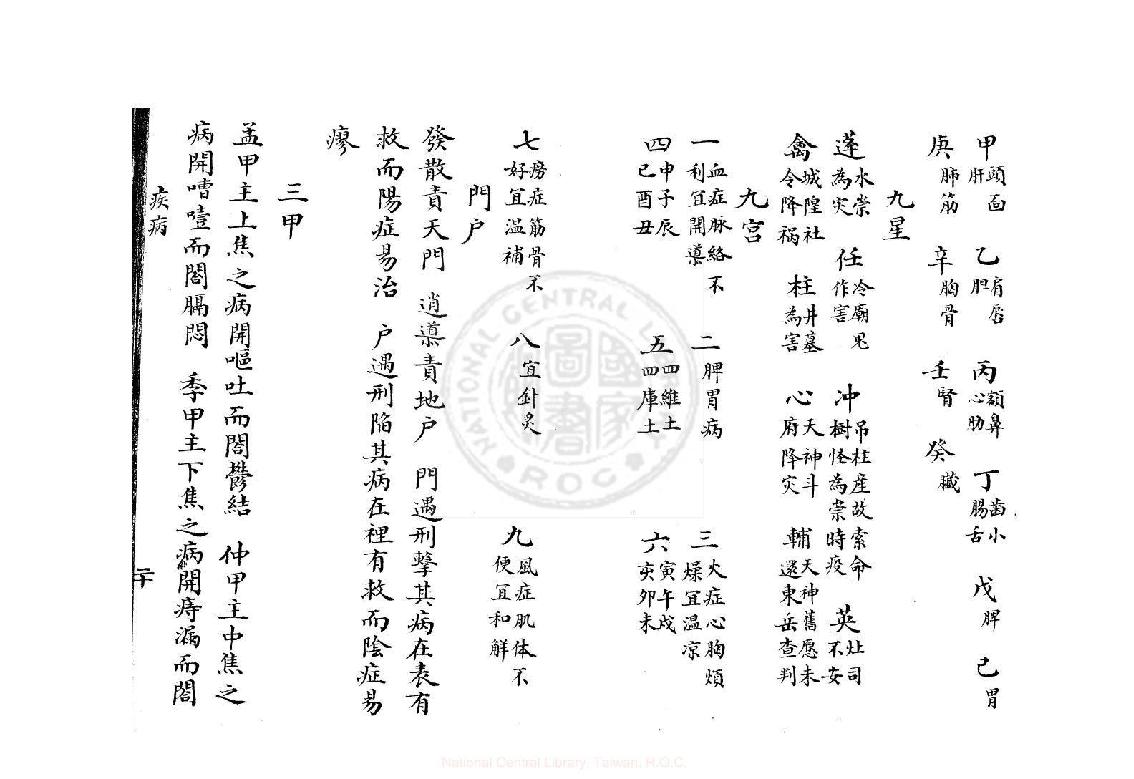 甲頭面肝 乙有唇胆 丙額鼻心肋 丁齒小腸舌 戊脾 己胃
庚肺筋 辛胸骨 壬腎 癸臟
九星
蓬水祟為灾 任冷廟鬼作害 冲吊柱産故索命樹怪為祟時疫 英灶司不安
禽城隍社令降禍 柱井墓為害 心天神斗府降灾 輔天神舊愿未還東岳查判
九宮
一血症脉絡不利宜開導 二脾胃病 三火症心胸煩燥宜温凉
四申子辰巳酉丑 五四維土四庫土 六寅午戌亥卯未
七癆症筋骨不好宜温補 八宜針灸 九風症肌体不便宜和解
門户
發散責天門 逍導責地户 門遇刑擊其病在表有
救而陽症易治 户遇刑陷其病在裡有救而陰症易
瘳
三甲
孟甲主上焦之病開嘔吐而闔鬱結 仲甲主中焦之
病開嘈噎而闔膈悶 季甲主下焦之病開痔漏而闔
疾病
二十
National Central Library, Taiwan, R.O.C.
NATIONAL CENTRAL LIBRARY
ROC
國家圖書館